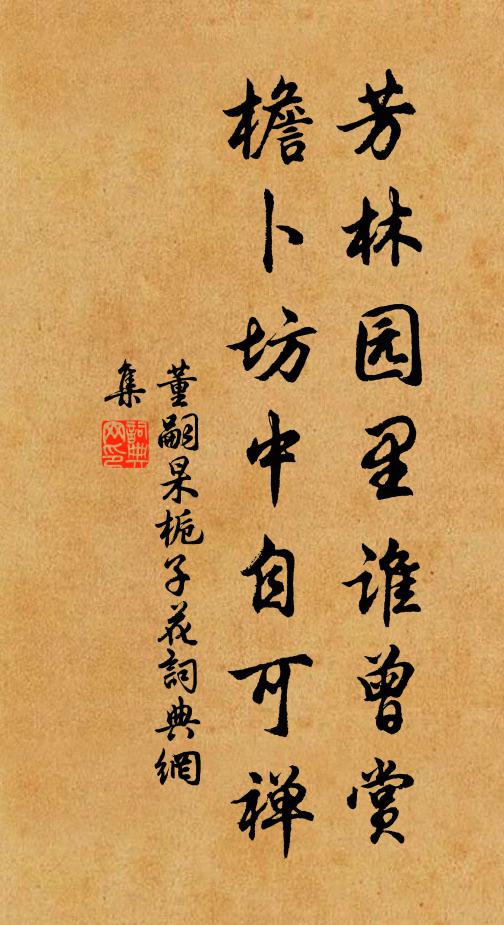 芳林园里谁曾赏
檐卜坊中自可禅
董嗣杲栀子花詞典網
集
詞典
网印